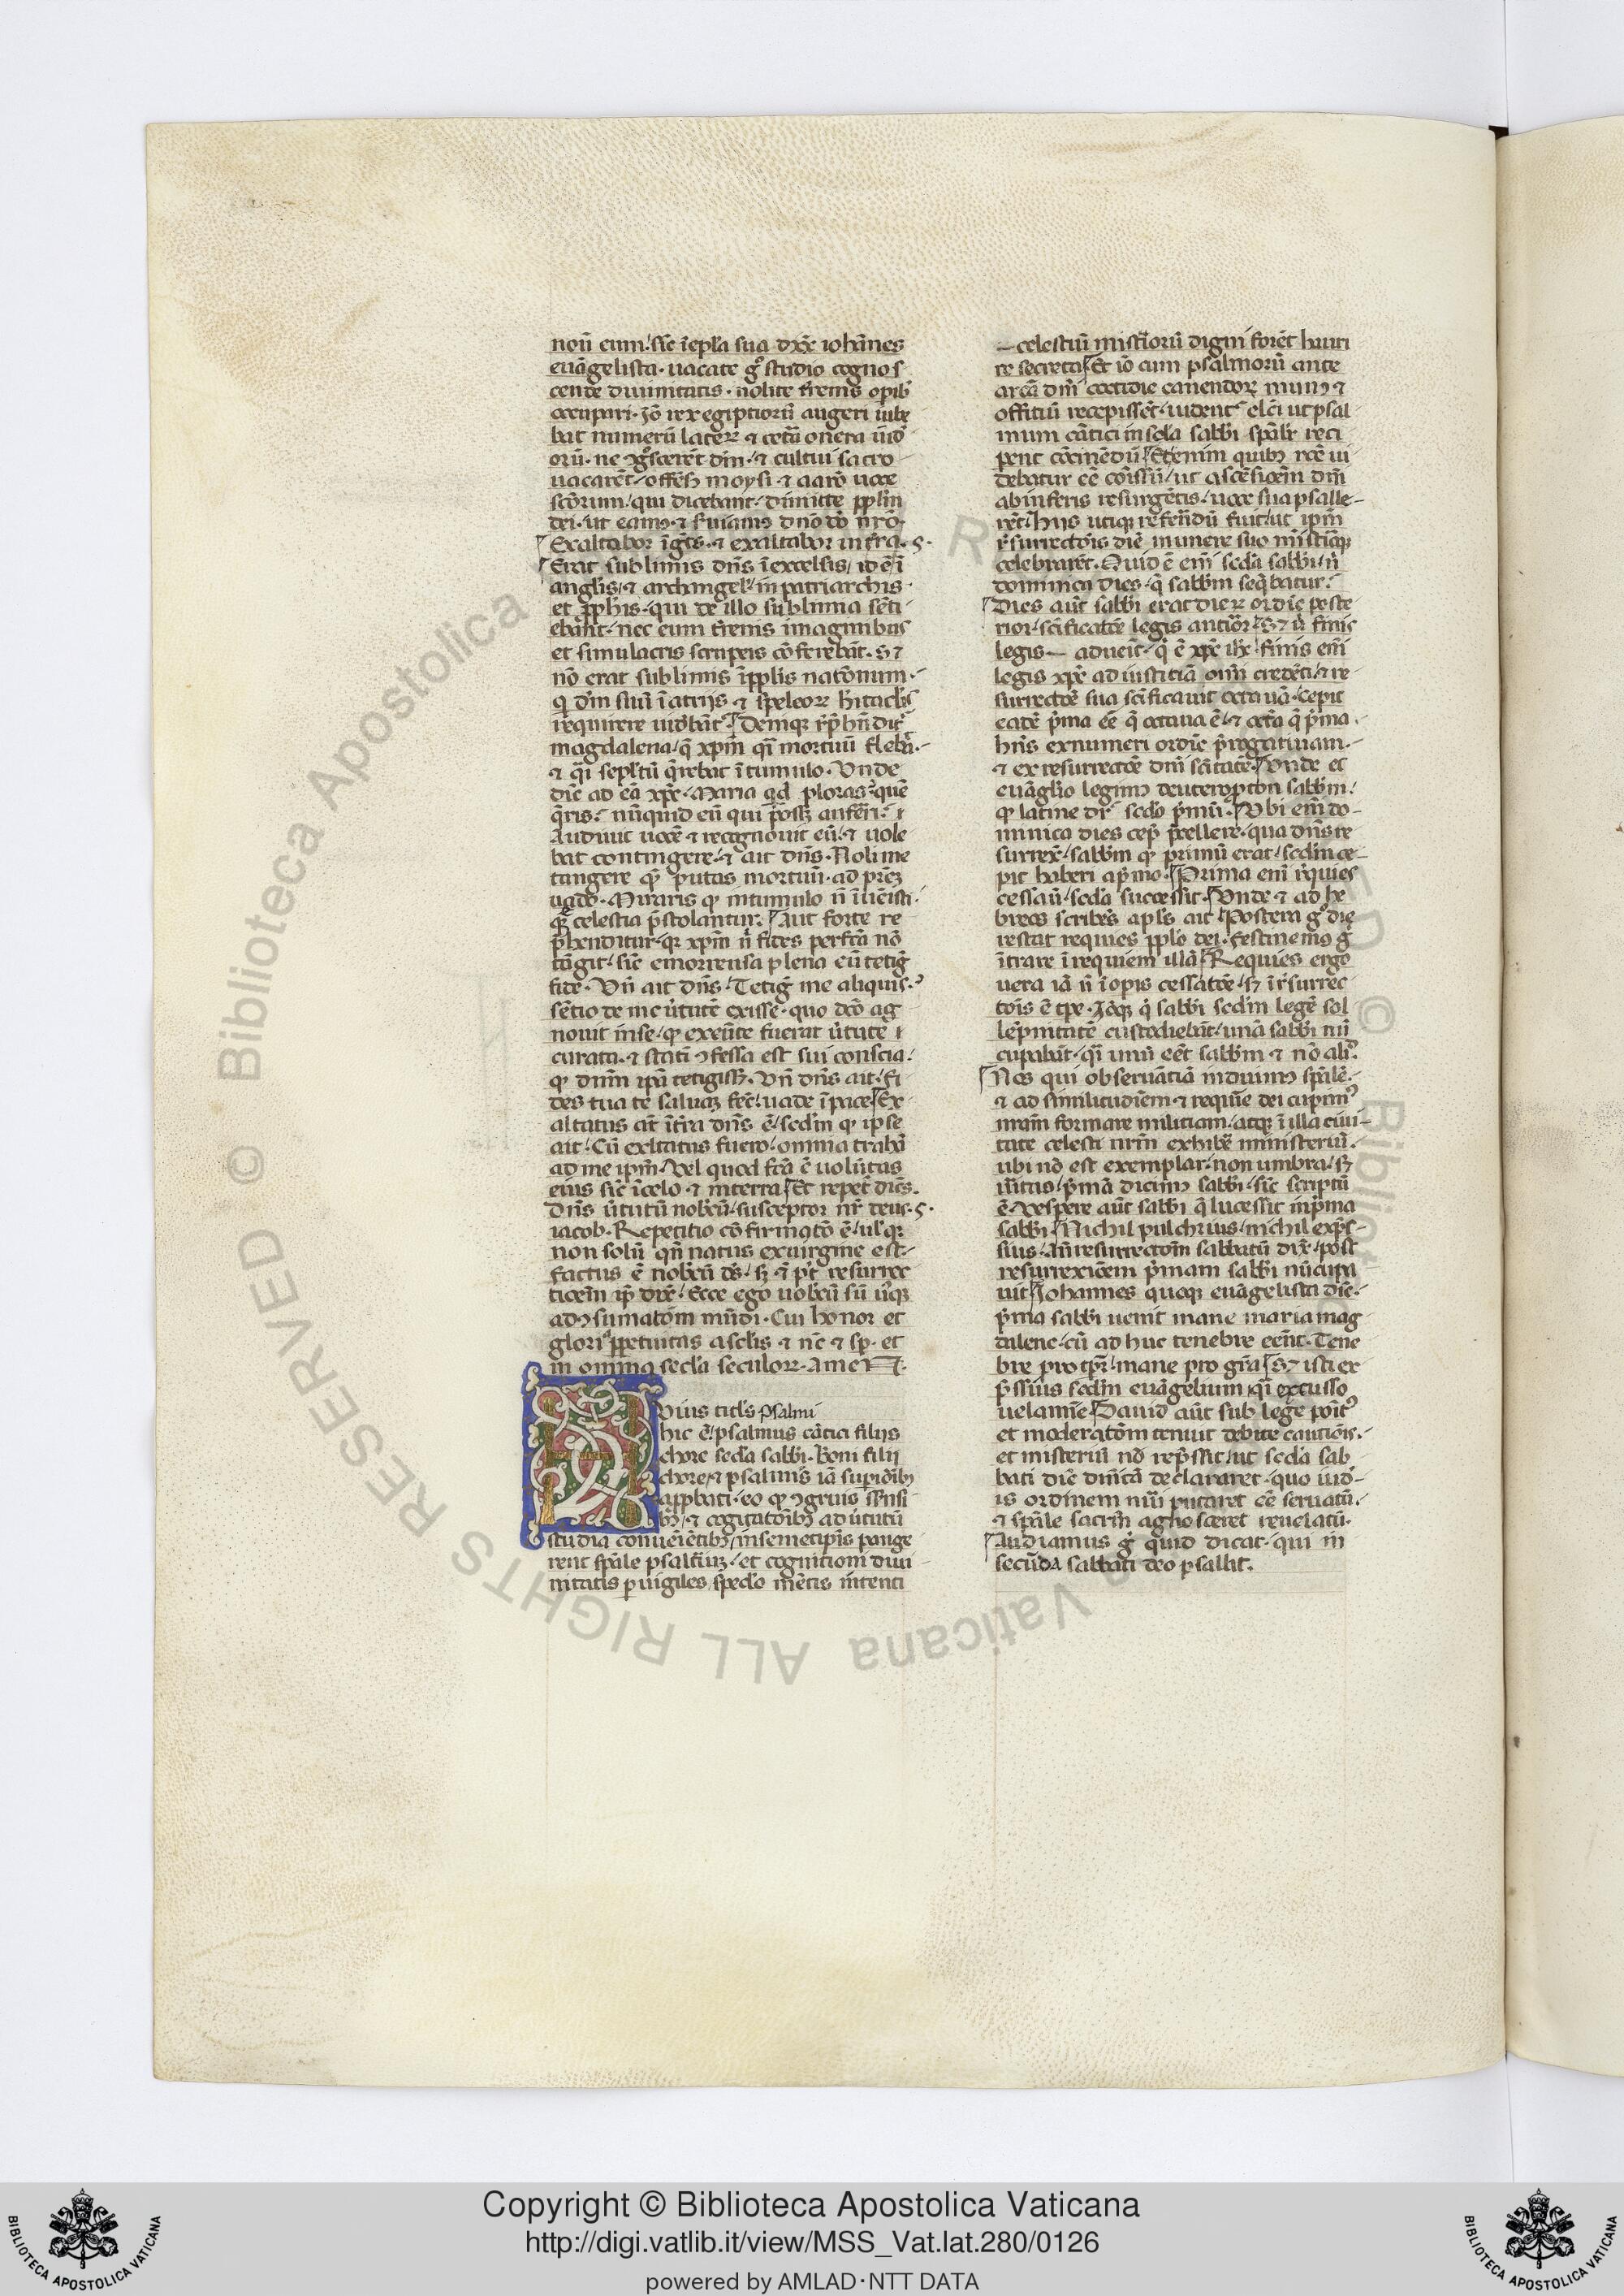 nouū eum. sic̄ ī epl̄a sua dx̄it ioh̄annes
euāgelista. uacate gͦ studio cognos
cende diuinitatis. nolite t̄renis opib
occupari. Iō rex egiptiorū augeri iube
bat numerū lateꝝ & cetā onera iūd
orū. ne ꝯgͦscerēt dm̄. & cultui sacro
uacarēt. offēsꝰ moysi & aarō uoce
sc̄orum. qui dicebant. dimitte ppl̄m
dei. ut eamꝰ & seruiamꝰ dn̄o dō nr̄o.
Exaltabor ī gētib. & exaltabor in t̄ra. S.
Erat sublimis dn̄s ī excelsis, id ē ī
angl̄is, & archangel̄. in patriarchis.
et ꝓph̄is. qui de illo sublimia sēti
ebānt. nec eum t̄renis imaginibus
et simulacris scrupeis cōferebāt. S &
nō erat sublimis ī ppl̄is natōnum.
q̄ dm̄ suū ī atrijs & speleoꝝ h̄itaclis
requirere uidebāt. Deniqꝫ rep̄hēdit
magdalena. q̄ xp̄m qͣi mortuū flebat.
& qͣi sepl̄tū q̄rebat ī tumulo. Vnde
dic̄ ad eā xp̄c. Maria qd ploras. quē
q̄ris. nūquid eū qui posꝫ auferri.
Audiuit uocē & recognouit eū. & uole
bat contingere. & ait dn̄s. Noli me
tangere qͦ putas mortuū. ad prēꝫ
uado. Miraris qͦ in tumulo n̄ īuēisti.
quē celestia p̄stolantur. Aut forte re
p̄henditur. quia xp̄m n̄ fides perfcā nō
tāgit. sic̄ emorreusa plena eū tetigͭ
fide. Vn̄ ait dn̄s. Tetigͭ me aliquis.
sētio de me uͥtutē exisse. quo dc̄o ag
nouit in se. qͦ exeūte fuerat uͥtute
curata. & statī ꝯfessa est sui conscia.
qͦ dnm̄ ipā tetigissꝫ. Vn̄ dn̄s ait. fi
des tua te saluaꝫ fec̄. uade ī pace. Ex
altatus ait ī t̄ra dn̄s ē. sedm̄ qͦ ipse
ait. Cū exltatus fuero. omnia trahā
ad me ipm̄. Vel quod fcā ē uolūtas
eius sic̄ ī celo. & in terra. Et repetͭ dicēs.
Dn̄s uͥtutū nobēcū. susceptor nr̄ deus. S.
iacob. Repetitio cōfirmatō ē. uel quia
non solū qn̄ natus ex uirgine est.
factus ē nobēcū ds̄. sꝫ & p̄t resurrec
tioēm ip̄e dix̄. Ecce ego uobēcū sū usqꝫ
ad ꝯsumatōm mūdi. Cui honor et
gloria ꝑpetuitas a sclīs & nc̄ & sp̄. et
in omnia secl̄a seculoꝝ. AmeN.
Vius titl̄s psalmi
hic ē. psalmus cātici filijs
chore secda sabbi. Boni filij
chore & psalmis iā supiōribꝫ
apꝓbati. eo qͦ ꝯgruis sensi
bꝫ. & cogitatōibꝫ ad uͥtutū
studia conueniētibꝫ. in semetipīs pange
rent spāle psalt̄iūꝫ. et cognitioni diui
nitatis p̄uigiles specl̄o mētis intenti
celestiū mist̄iorū digni forēt hauri
re secreta. Et iō cum psalmorū ante
arcā dm̄ cottidie canendoꝝ munꝰ &
offitiū recepissēt. uident̄ elc̄i ut psal
mum cātici in secl̄a sabbi spāliꝉ reci
perēt cōcinēdū. Etenim quibꝫ rc̄e ui
debatur eē cōm̄issū. ut ascēsioēm dn̄i
ab inferis resurgētis. uoce sua psalle
rēt. hijs utiqꝫ referēdū fuit. ut ipm̄
resurrectōis diē munere suo misticeqꝫ
celebrarēt. Quid ē em̄ secda sabbi. n̄
dominica dies. q̄ sabbm̄ seq̄batur.
Dies aut̄ sabbi erat dieꝝ ordīe poste
rior. sc̄ificatōe legis antiōr. S& ū finis
legis aduēit. qͥ ē xp̄c ihc̄. finis em̄
legis xp̄c ad iustitiā om̄i credēti. & re
surrectōe sua sc̄ificauit octauā. cepit
eadē pͥma eē q̄ octaua ē. & octa q̄ pͥma.
hn̄s ex numeri ordīe p̄rogatiuam.
& ex resurrectōe dn̄i sc̄itatē. Vnde et
euāglīo legimꝰ deuteroproton sabbm̄.
qͦ latine dr̄ secdo pͥmū. Vbi em̄ do
minica dies cepͭ p̄cellere. qua dn̄s re
surrex̄. sabbm̄ qͦ primū erat. secdm ce
pit haberi a pͥmo. Prima em̄ reqͥes
cessauͭ. secda successit. Vnde & ad he
breos scribēs apl̄s ait. Postera gͦ die
restat requies ppl̄o dei. festinemꝰ gͦ
ītrare ī requiem illā. Requies ergo
uera iā n̄ ī opis cessatōe. sꝫ ī resurrec
tōis ē tp̄e. Itaqꝫ qͥ sabbi scdm̄ legē sol
lēpnitatē custodiebāt. unā sabbi nū
cupabāt. qͣi unū eēt sabbm̄ & nō aliͩ.
Nos qui obseruātiā induimꝰ spālē.
& ad similitudīem & requiē dei cupimꝰ
nr̄am formare militiam. atqꝫ ī illa ciui
tate celesti nr̄m exhibē ministeriū.
ubi nō est exemplar. non umbra. sꝫ
uͥitas. pͥmā dicimꝰ sabbi. sic̄ scriptū
ē. Vespere aut̄ sabbi q̄ lucessit in pͥma
sabbi. Nichil pulchrius. nichil expͥs
sius. An̄ resurrectōm sabbatū dix̄. post
resurrexioēem pͥmam sabbi nūcupa
uit. Iohannes quoqꝫ euāgelista dic̄.
pͥma sabbi uenit mane maria mag
dalene. cū ad huc tenebre eēnt. Tene
bre pro tp̄r. mane pro gr̄a. S& isti ex
p̄ssius scdm̄ euāgelium. qͣi excusso
uelamīe. Dauid aut̄ sub lege poitꝰ
et moderatōm tenuit debite cautiōis.
et misteriū nō rep̄ssit. ut secda sab
bati diē dn̄icā declararet. quo iud
is ordinem nūi putaret eē seruatū.
& spāle sacrm̄ agnosceret reuelatū.
Audiamus gͦ quid dicat. qui in
secūda sabbati deo psallit.
Copyright © Biblioteca Apostolica Vaticana
http://digi.vatlib.it/view/MSS_Vat.lat.280/0126
powered by AMLAD·NTT DATA
BIBLIOTECA APOSTOLICA VATICANA
BIBLIOTECA APOSTOLICA VATICANA
© Biblioteca Apostolica Vaticana ALL RIGHTS RESERVED